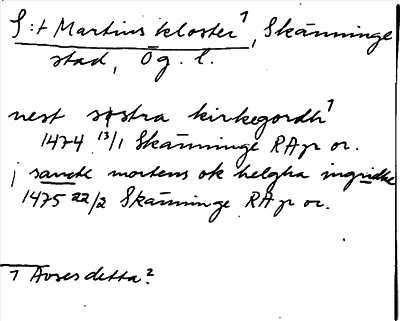 S:t Martins kloster¹, Skänninge
stad, Ög. l.
nest systra kirkegordh¹
1474 13/1 Skänninge RAp or.
j sancte mortens ok helgha ingridhe
1475 22/2 Skänninge RAp or.
1 Avses detta?